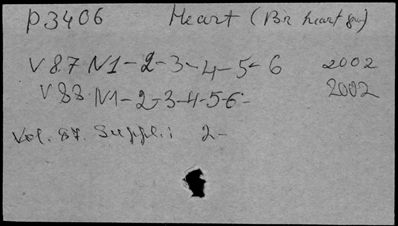 P3406 Heart (Br heart jou)
V 87 N1-2-3-4-5-6 2002
V 88 N1-2-3-4-5-6- 2002
Vol. 87. Suppl.: 2-